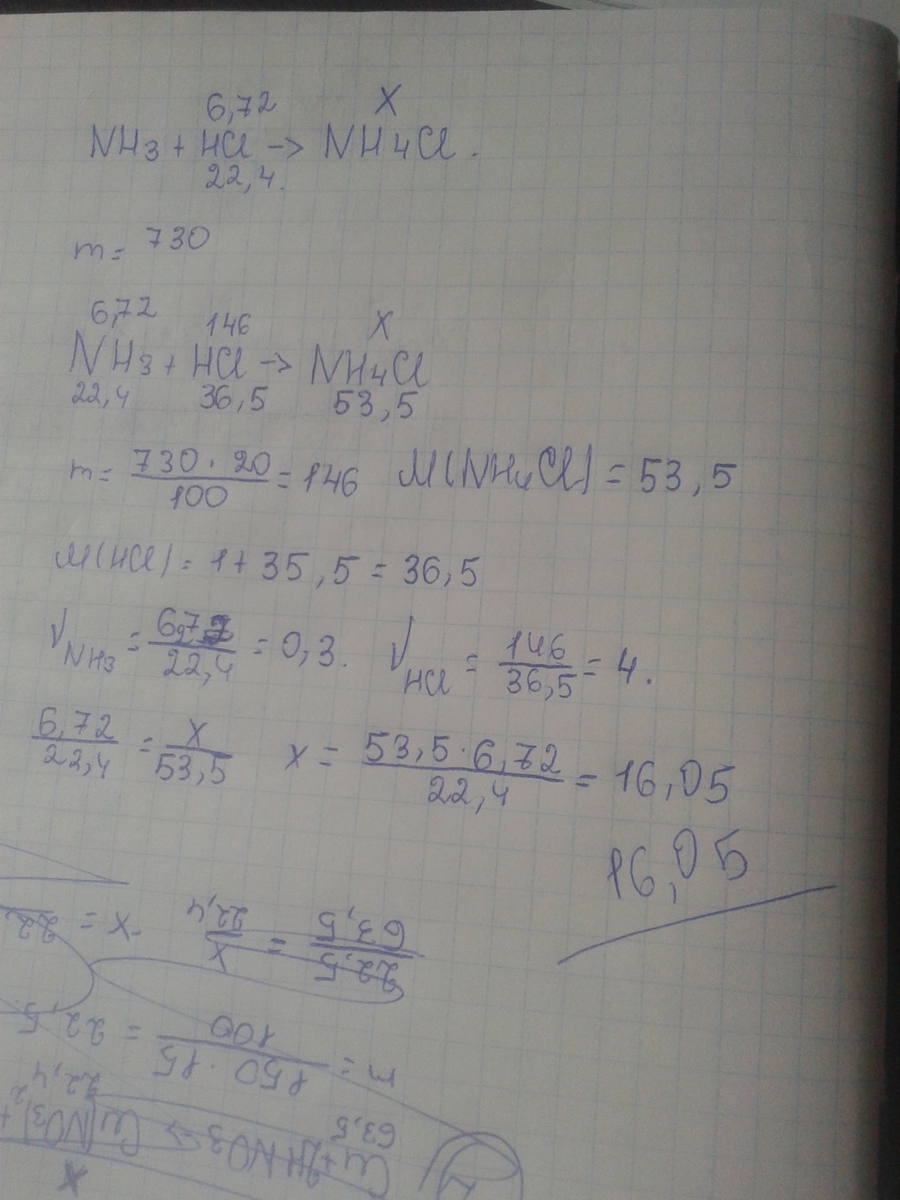 6,72 X
NH3 + HCl -> NH4Cl.
22,4.
m = 730
6,72 146 X
NH3 + HCl -> NH4Cl
22,4 36,5 53,5
m = 730 · 20 / 100 = 146 M(NH4Cl) = 53,5
M(HCl) = 1 + 35,5 = 36,5
νNH3 = 6,72 / 22,4 = 0,3. νHCl = 146 / 36,5 = 4.
6,72 / 22,4 = x / 53,5 x = 53,5 · 6,72 / 22,4 = 16,05
16,05
x
Cu + 2HNO3 -> Cu(NO3)2 +
63,5 22,4
m = 150 · 15 / 100 = 22,5
22,5 / 63,5 = x / 22,4 x = 22